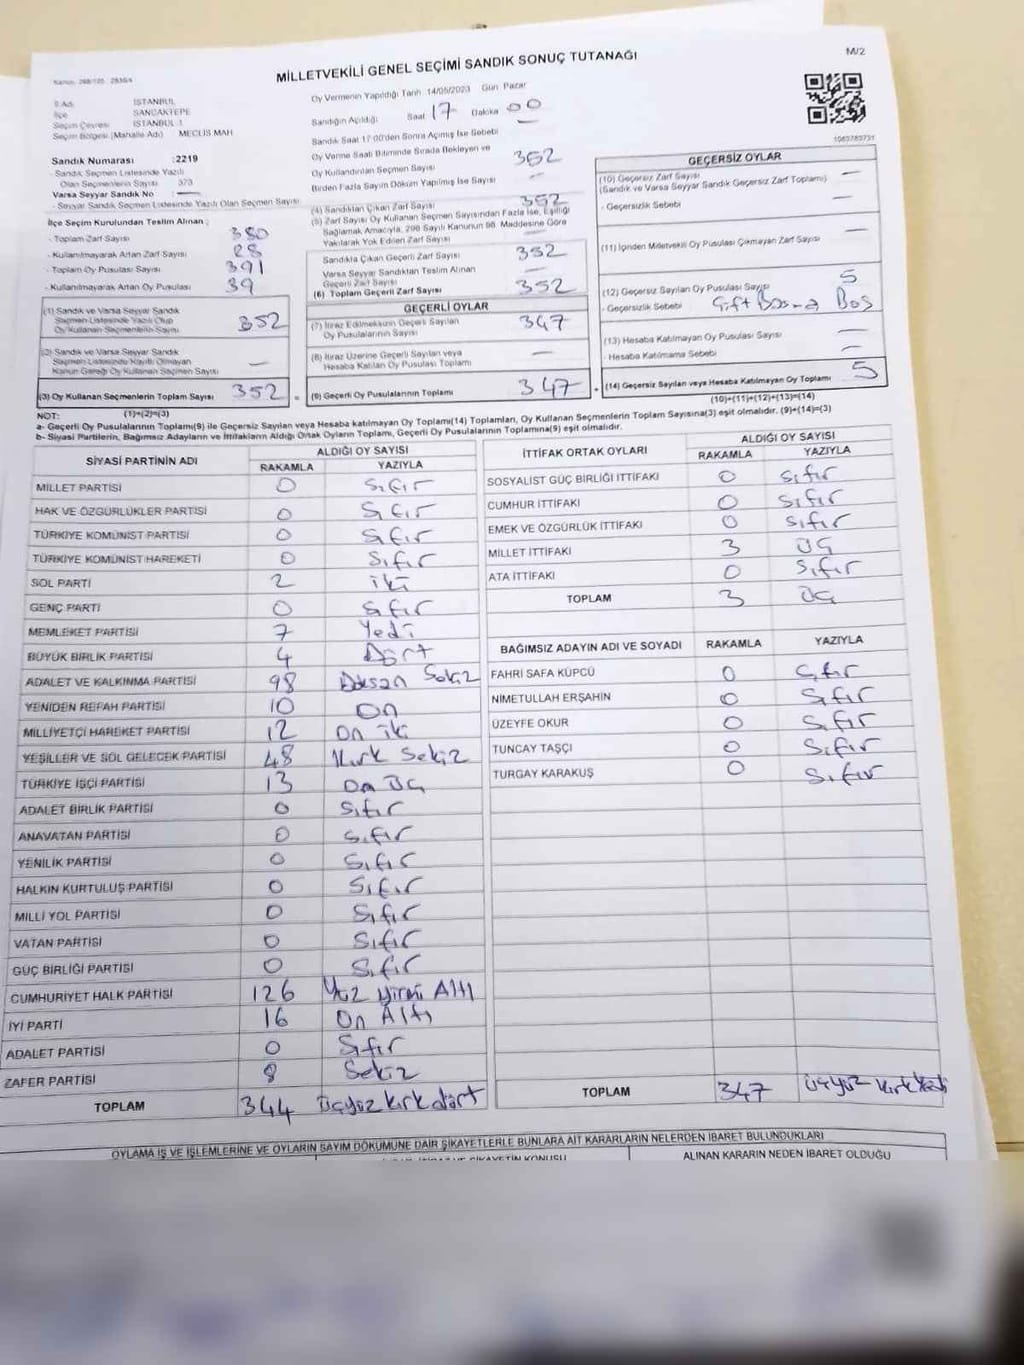 Kanun: 298/105, 2839/4
MİLLETVEKİLİ GENEL SEÇİMİ SANDIK SONUÇ TUTANAĞI
M/2
İl Adı İSTANBUL
İlçe SANCAKTEPE
Seçim Çevresi İSTANBUL-1
Seçim Bölgesi (Mahalle Adı) MECLİS MAH
Sandık Numarası :2219
- Sandık Seçmen Listesinde Yazılı
Olan Seçmenlerin Sayısı 373
Varsa Seyyar Sandık No : —
- Seyyar Sandık Seçmen Listesinde Yazılı Olan Seçmen Sayısı
İlçe Seçim Kurulundan Teslim Alınan ;
- Toplam Zarf Sayısı 380
- Kullanılmayarak Artan Zarf Sayısı 28
- Toplam Oy Pusulası Sayısı 391
- Kullanılmayarak Artan Oy Pusulası 39
(1) Sandık ve Varsa Seyyar Sandık
Seçmen Listesinde Yazılı Olup
Oy Kullanan Seçmenlerin Sayısı 352
(2) Sandık ve Varsa Seyyar Sandık
Seçmen Listesinde Kayıtlı Olmayan
Kanun Gereği Oy Kullanan Seçmen Sayısı —
(3) Oy Kullanan Seçmenlerin Toplam Sayısı 352 =
Oy Vermenin Yapıldığı Tarih 14/05/2023 Gün Pazar
Sandığın Açıldığı Saat 17 Dakika 00
Sandık Saat 17:00'den Sonra Açımış İse Sebebi —
Oy Verme Saati Bitiminde Sırada Bekleyen ve
Oy Kullandırılan Seçmen Sayısı 352
Birden Fazla Sayım Döküm Yapılmış İse Sayısı —
(4) Sandıktan Çıkan Zarf Sayısı 352
(5) Zarf Sayısı Oy Kullanan Seçmen Sayısından Fazla İse, Eşitliği
Sağlamak Amacıyla, 298 Sayılı Kanunun 98. Maddesine Göre
Yakılarak Yok Edilen Zarf Sayısı —
Sandıkta Çıkan Geçerli Zarf Sayısı 352
Varsa Seyyar Sandıktan Teslim Alınan
Geçerli Zarf Sayısı —
(6) Toplam Geçerli Zarf Sayısı 352
GEÇERLİ OYLAR
(7) İtiraz Edilmeksizin Geçerli Sayılan
Oy Pusulalarının Sayısı 347
(8) İtiraz Üzerine Geçerli Sayılan veya
Hesaba Katılan Oy Pusulası Toplamı —
(9) Geçerli Oy Pusulalarının Toplamı 347 +
1060783731
GEÇERSİZ OYLAR
(10) Geçersiz Zarf Sayısı —
(Sandık ve Varsa Seyyar Sandık Geçersiz Zarf Toplamı)
- Geçersizlik Sebebi —
(11) İçinden Milletvekili Oy Pusulası Çıkmayan Zarf Sayısı —
(12) Geçersiz Sayılan Oy Pusulası Sayısı 5
- Geçersizlik Sebebi Çift Basma Boş
(13) Hesaba Katılmayan Oy Pusulası Sayısı —
- Hesaba Katılmama Sebebi —
(14) Geçersiz Sayılan veya Hesaba Katılmayan Oy Toplamı 5
(10)+(11)+(12)+(13)=(14)
NOT: (1)+(2)=(3)
a- Geçerli Oy Pusulalarının Toplamı(9) ile Geçersiz Sayılan veya Hesaba katılmayan Oy Toplamı(14) Toplamları, Oy Kullanan Seçmenlerin Toplam Sayısına(3) eşit olmalıdır. (9)+(14)=(3)
b- Siyasi Partilerin, Bağımsız Adayların ve İttifakların Aldığı Ortak Oyların Toplamı, Geçerli Oy Pusulalarının Toplamına(9) eşit olmalıdır.
SİYASİ PARTİNİN ADI ALDIĞI OY SAYISI
RAKAMLA YAZIYLA
MİLLET PARTİSİ 0 Sıfır
HAK VE ÖZGÜRLÜKLER PARTİSİ 0 Sıfır
TÜRKİYE KOMÜNİST PARTİSİ 0 Sıfır
TÜRKİYE KOMÜNİST HAREKETİ 0 Sıfır
SOL PARTİ 2 iki
GENÇ PARTİ 0 Sıfır
MEMLEKET PARTİSİ 7 Yedi
BÜYÜK BİRLİK PARTİSİ 4 Dört
ADALET VE KALKINMA PARTİSİ 98 Doksan Sekiz
YENİDEN REFAH PARTİSİ 10 On
MİLLİYETÇİ HAREKET PARTİSİ 12 On iki
YEŞİLLER VE SOL GELECEK PARTİSİ 48 Kırk Sekiz
TÜRKİYE İŞÇİ PARTİSİ 13 On Üç
ADALET BİRLİK PARTİSİ 0 Sıfır
ANAVATAN PARTİSİ 0 Sıfır
YENİLİK PARTİSİ 0 Sıfır
HALKIN KURTULUŞ PARTİSİ 0 Sıfır
MİLLİ YOL PARTİSİ 0 Sıfır
VATAN PARTİSİ 0 Sıfır
GÜÇ BİRLİĞİ PARTİSİ 0 Sıfır
CUMHURİYET HALK PARTİSİ 126 Yüz yirmi Altı
İYİ PARTİ 16 On Altı
ADALET PARTİSİ 0 Sıfır
ZAFER PARTİSİ 8 Sekiz
TOPLAM 344 üçyüz kırk dört
İTTİFAK ORTAK OYLARI ALDIĞI OY SAYISI
RAKAMLA YAZIYLA
SOSYALİST GÜÇ BİRLİĞİ İTTİFAKI 0 Sıfır
CUMHUR İTTİFAKI 0 Sıfır
EMEK VE ÖZGÜRLÜK İTTİFAKI 0 Sıfır
MİLLET İTTİFAKI 3 Üç
ATA İTTİFAKI 0 Sıfır
TOPLAM 3 Üç
BAĞIMSIZ ADAYIN ADI VE SOYADI RAKAMLA YAZIYLA
FAHRİ SAFA KÜPCÜ 0 Sıfır
NİMETULLAH ERŞAHİN 0 Sıfır
ÜZEYFE OKUR 0 Sıfır
TUNCAY TAŞÇI 0 Sıfır
TURGAY KARAKUŞ 0 Sıfır
TOPLAM 347 üçyüz kırk Yedi
OYLAMA İŞ VE İŞLEMLERİNE VE OYLARIN SAYIM DÖKÜMÜNE DAİR ŞİKAYETLERLE BUNLARA AİT KARARLARIN NELERDEN İBARET BULUNDUKLARI
ALINAN KARARIN NEDEN İBARET OLDUĞU